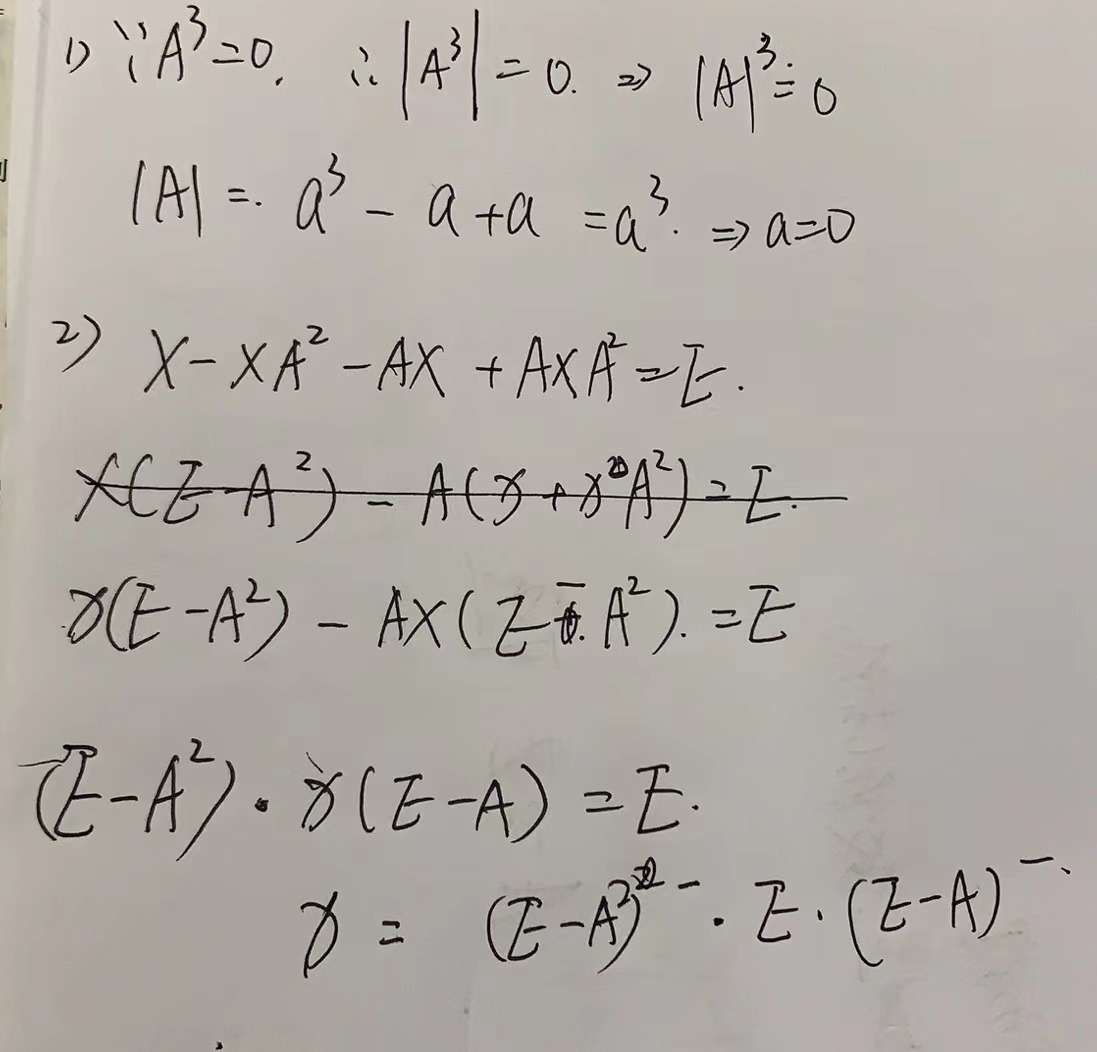 1) ∵A³=0. ∴|A³|=0. ⇒ |A|³=0
|A|= a³-a+a =a³. ⇒a=0
2) X-XA²-AX+AXA²=E.
X(E-A²)-A(X+XA²)=E.
X(E-A²)-AX(E-A²).=E
(E-A²)·X(E-A)=E.
X= (E-A²)⁻·E·(E-A)⁻.